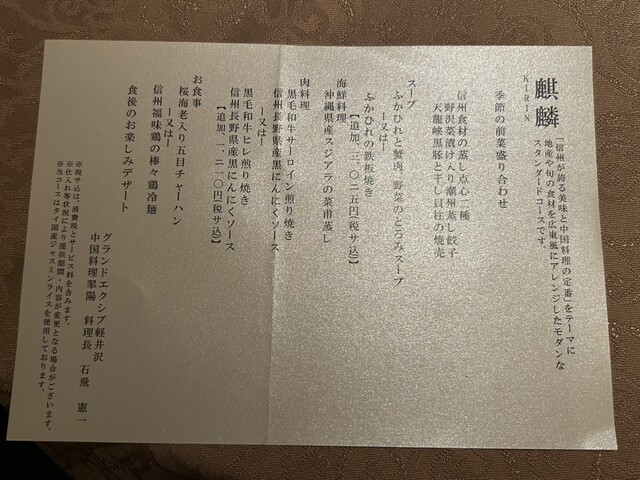 麒麟
KIRIN
「信州が誇る美味と中国料理の定番」をテーマに
地産や旬の食材を広東風にアレンジしたモダンな
スタンダードコースです。
季節の前菜盛り合わせ
信州食材の蒸し点心二種
野沢菜漬け入り潮州蒸し餃子
天龍峡黒豚と干し貝柱の焼売
スープ
ふかひれと蟹肉、野菜のとろみスープ
ー又はー
ふかひれの鉄板焼き
【追加、三、〇二五円(税サ込)】
海鮮料理
沖縄県産スジアラの菜甫蒸し
肉料理
黒毛和牛サーロイン煎り焼き
信州長野県産黒にんにくソース
ー又はー
黒毛和牛ヒレ煎り焼き
信州長野県産黒にんにくソース
【追加、一、二一〇円(税サ込)】
お食事
桜海老入り五目チャーハン
ー又はー
信州福味鶏の棒々鶏冷麺
食後のお楽しみデザート
グランドエクシブ軽井沢
中国料理翠陽 料理長 石飛 憲一
※税サ込は、消費税とサービス料を含みます。
※仕入れ等状況により提供期間・内容が変更となる場合がございます。
※当コースはタイ国産ジャスミンライスを使用しております。